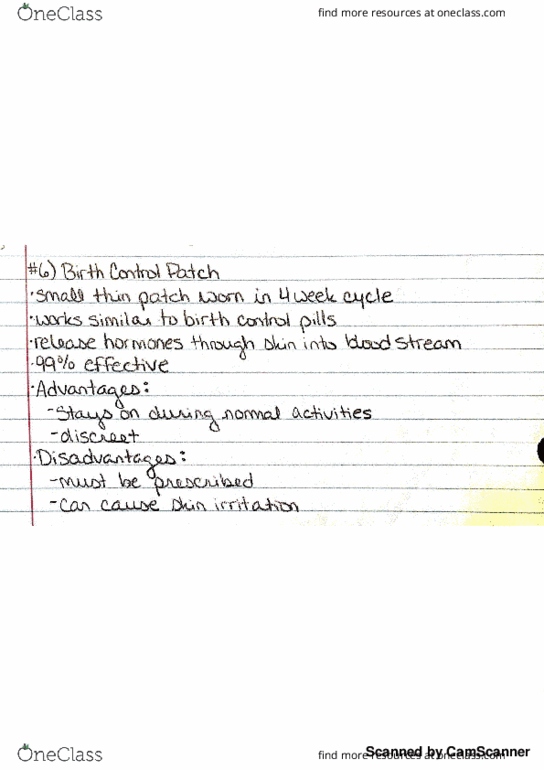 OneClass
find more resources at oneclass.com
#6) Birth Control Patch
·small thin patch worn in 4 week cycle
·works similar to birth control pills
·release hormones through skin into blood stream
·99% effective
·Advantages:
-Stays on during normal activities
-discreet
·Disadvantages:
-must be prescribed
-can cause skin irritation
OneClass
find more resources at oneclass.com
Scanned by CamScanner